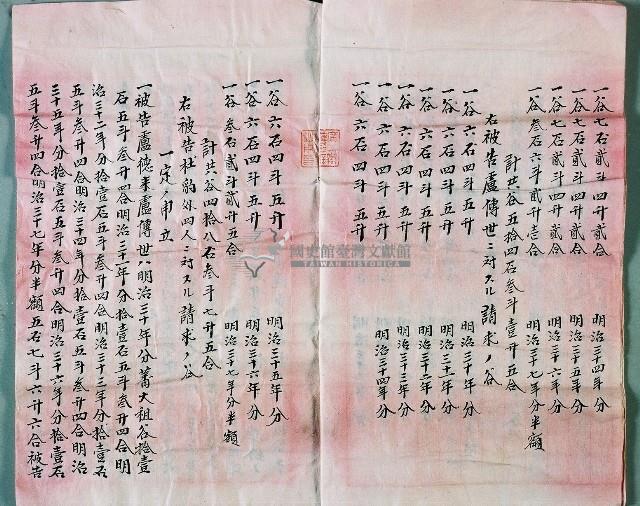 一谷七石貳斗四升貳合 明治三十四年分
一谷七石貳斗四升貳合 明治三十五年分
一谷七石貳斗四升貳合 明治三十六年分
一谷叁石六斗貳升壹合 明治三十七年分半額
計共谷五拾四石叁斗壹升五合
右被告盧傳世ニ対スル請求ノ谷
一谷六石四斗五升 明治三十年分
一谷六石四斗五升 明治三十一年分
一谷六石四斗五升 明治三十二年分
一谷六石四斗五升 明治三十三年分
一谷六石四斗五升 明治三十四年分
一谷六石四斗五升 明治三十五年分
一谷六石四斗五升 明治三十六年分
一谷叁石貳斗貳升五合 明治三十七年分半額
計共谷四拾八石叁斗七升五合
右被告杜 外四人ニ対スル請求ノ谷
一定ノ申立
一被告盧德来盧傳世ハ明治三十年分蕃大租谷拾壹
石五斗叁升四合明治三十一年分拾壹石五斗叁升四合明
治三十二年分拾壹石五斗叁升四合明治三十三年分拾壹石
五斗叁升四合明治三十四年分拾壹石五斗叁升四合明治
三十五年分拾壹石五斗叁升四合明治三十六年分拾壹石
五斗叁升四合明治三十七年分半額五石七斗六升六合被告
國史館臺灣文獻館
TAIWAN HISTORICA